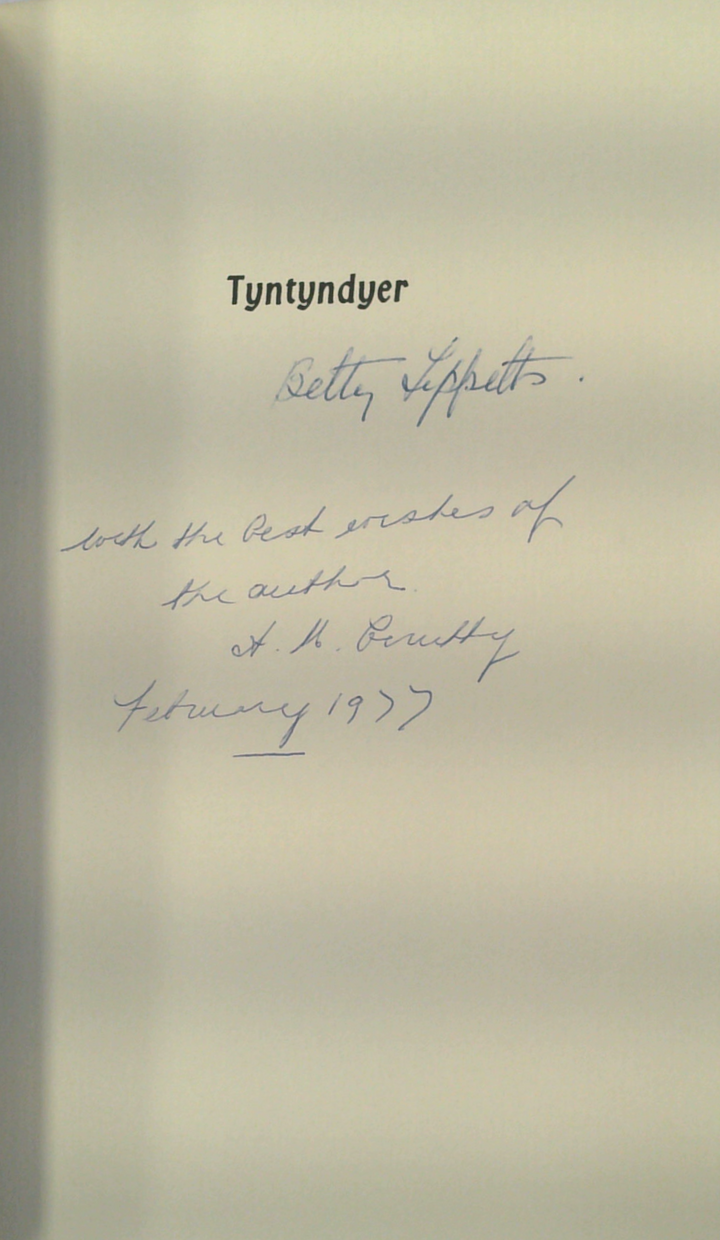 Tyntyndyer
Betty Tippetts.
With the best wishes of
the author.
A. M. Cerutty
February 1977